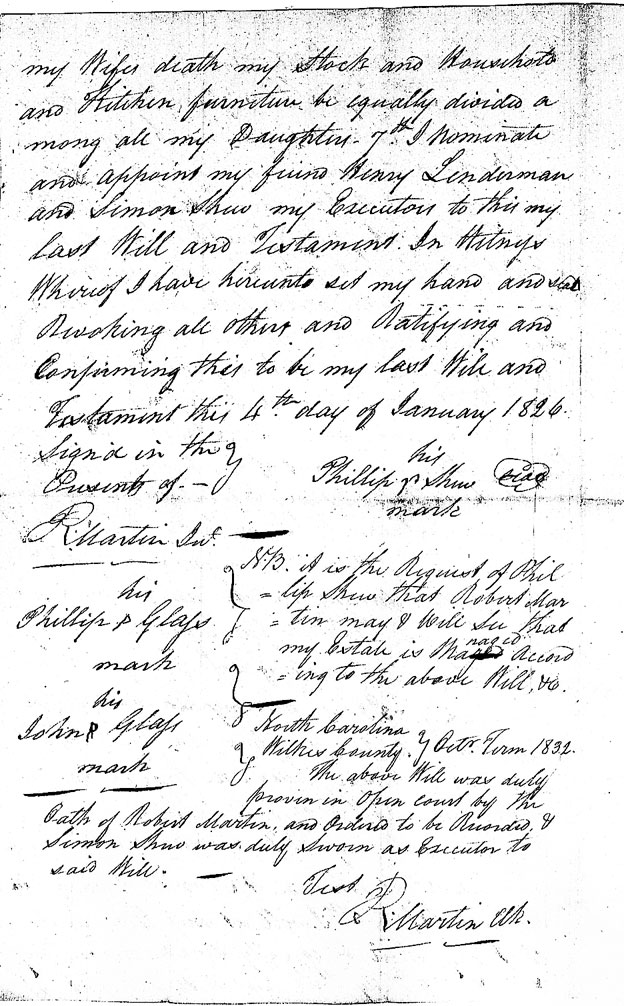 my Wifes death my Stock and Household
and Kitchen furniture be equally divided a
mong all my Daughters. 7th I Nominate
and appoint my friend Henry Lenderman
and Simon Shew my Executors to this my
last Will and Testament. In Witness
Whereof I have hereunto set my hand and seal
Revoking all others and Ratifying and
Confirming this to be my last Will and
Testament this 4th day of January 1826.
Signd in the
Presents of. –
his
Phillip P Shew Seal
mark
R. Martin Jur.
his
Phillip P Glass
mark
his
John P Glass
mark
N.B. it is the Request of Phil
= lip Shew that Robert Mar
= tin may & Will see that
my Estate is Managed Accord
= ing to the above Will, &c.
North Carolina
Wilkes County. } Octr. Term 1832.
The above Will was duly
proven in Open court by the
Oath of Robert Martin, and Ordered to be Recorded, &
Simon Shew was duly Sworn as Executor to
said Will. —
Test
R. Martin Clk.